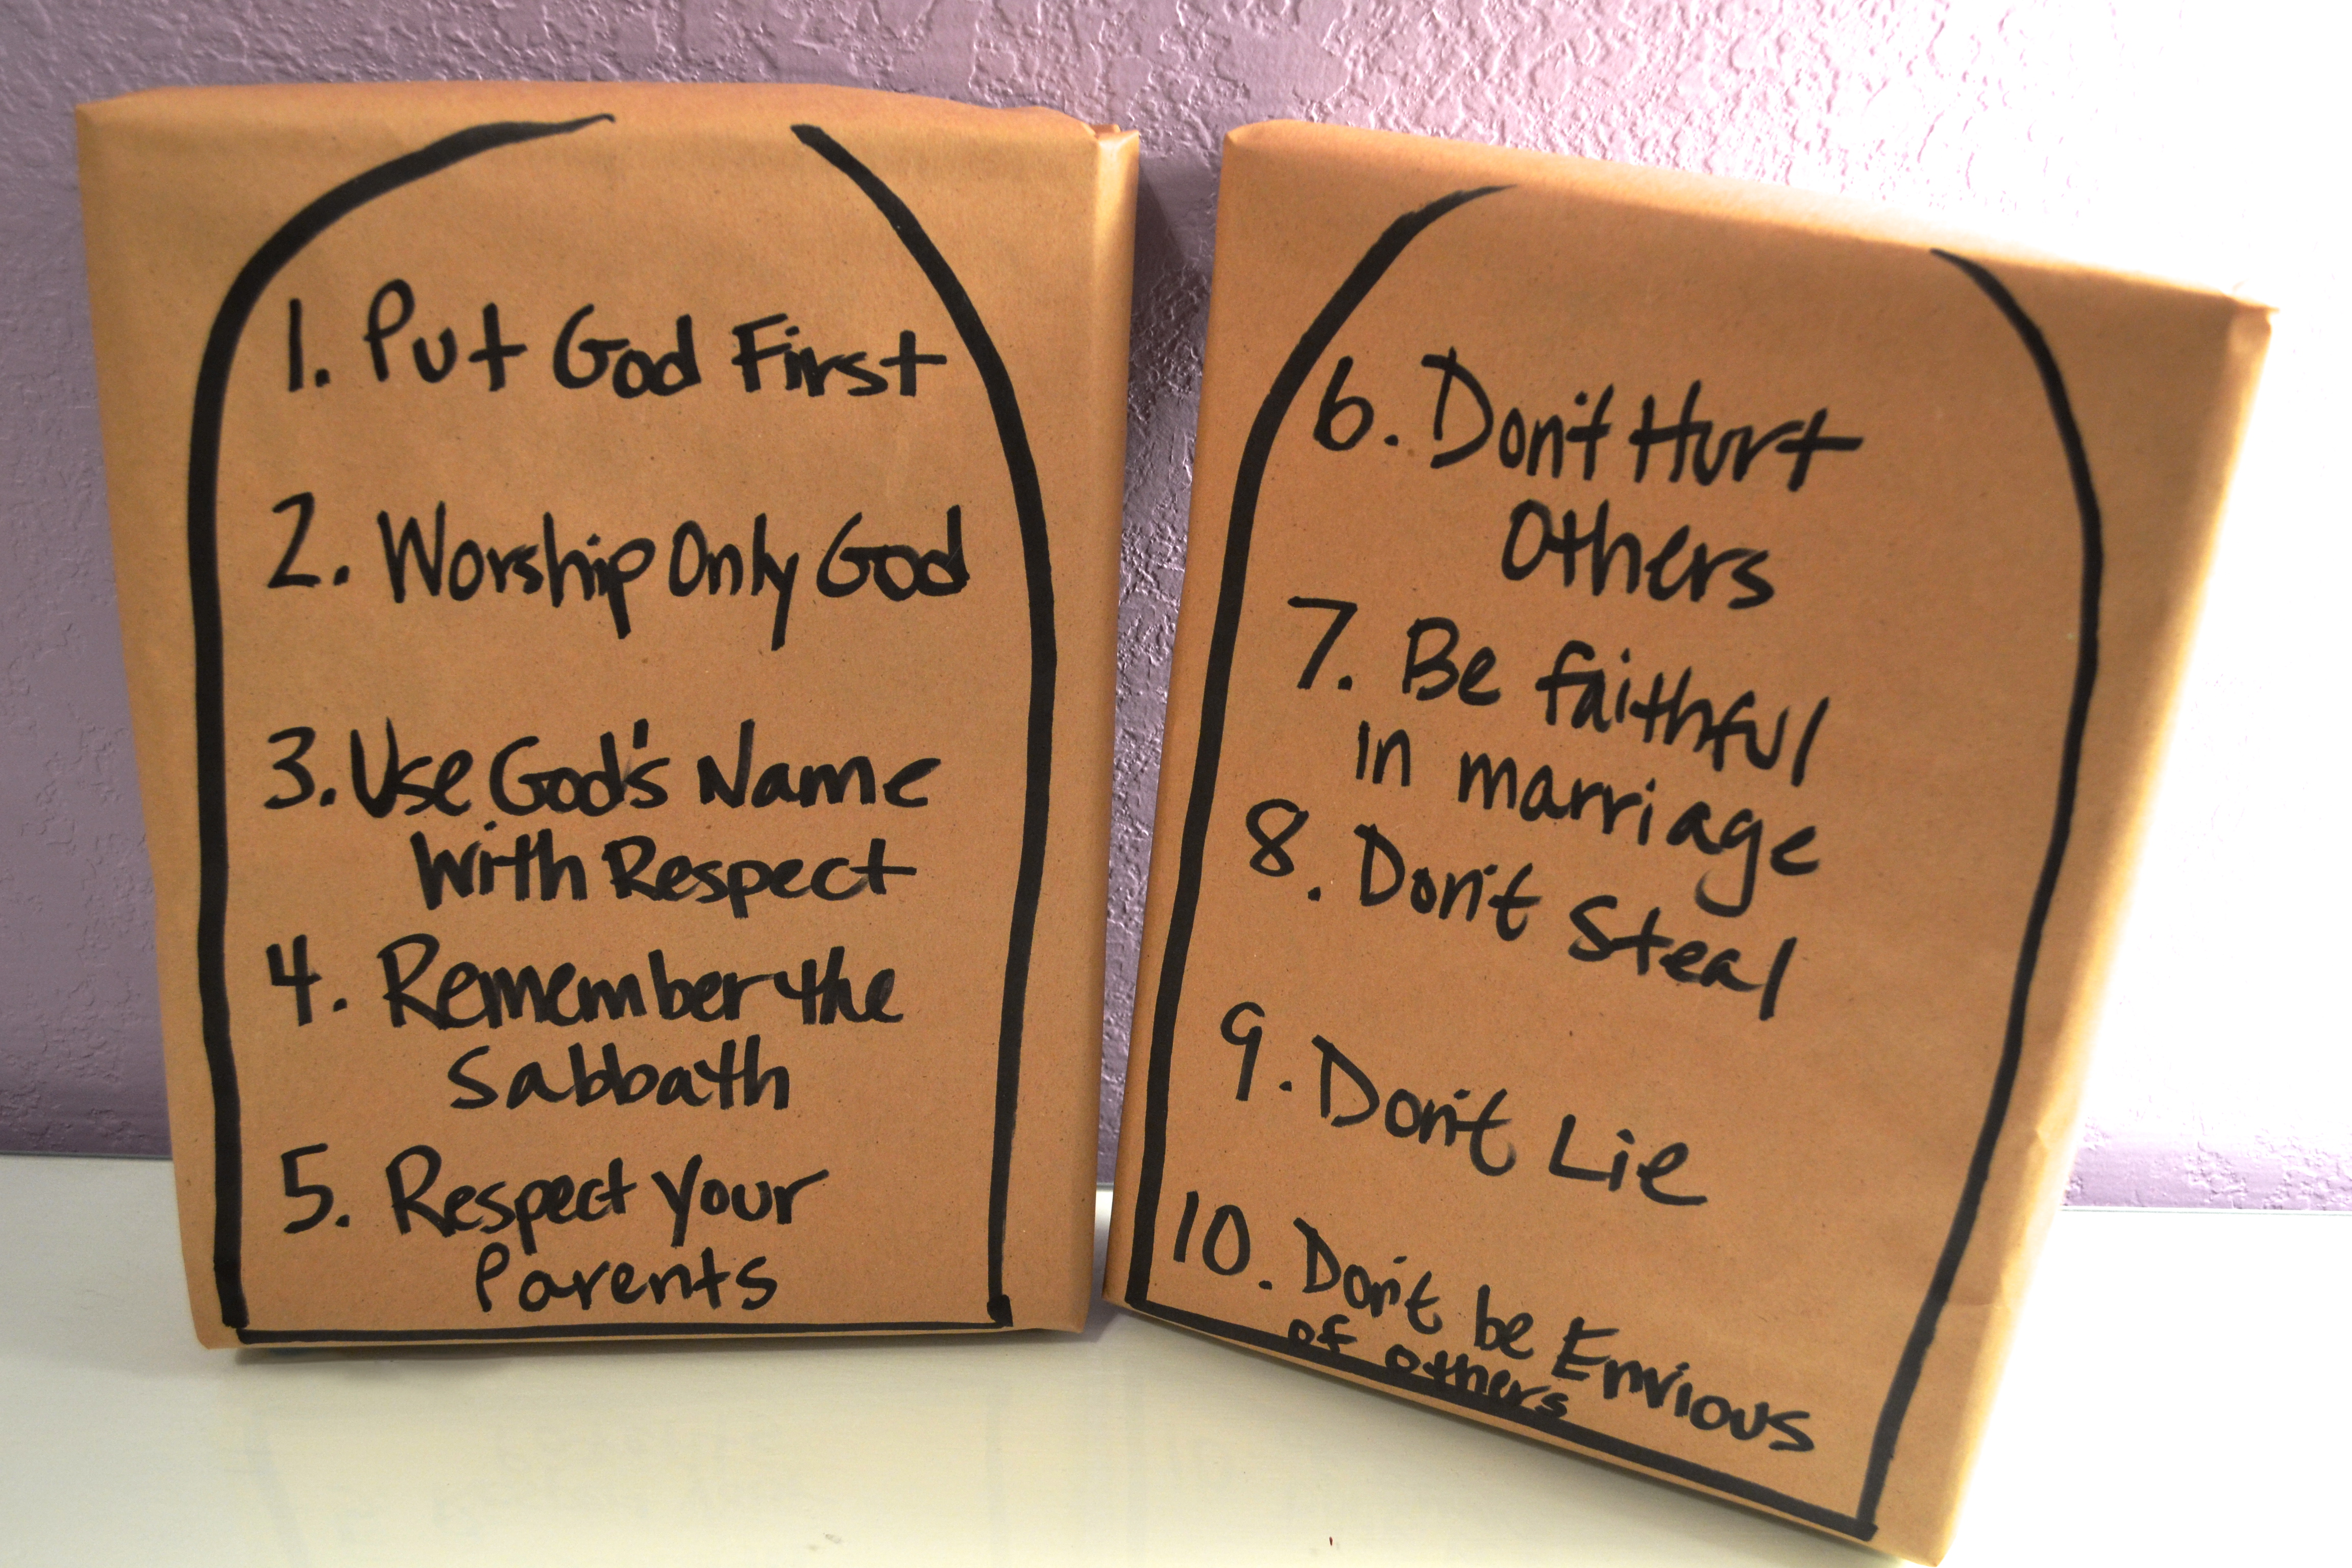 1. Put God First
2. Worship Only God
3. Use God's Name
With Respect
4. Remember the
Sabbath
5. Respect Your
Parents
6. Don't Hurt
Others
7. Be faithful
in marriage
8. Don't Steal
9. Don't Lie
10. Don't be Envious
of others